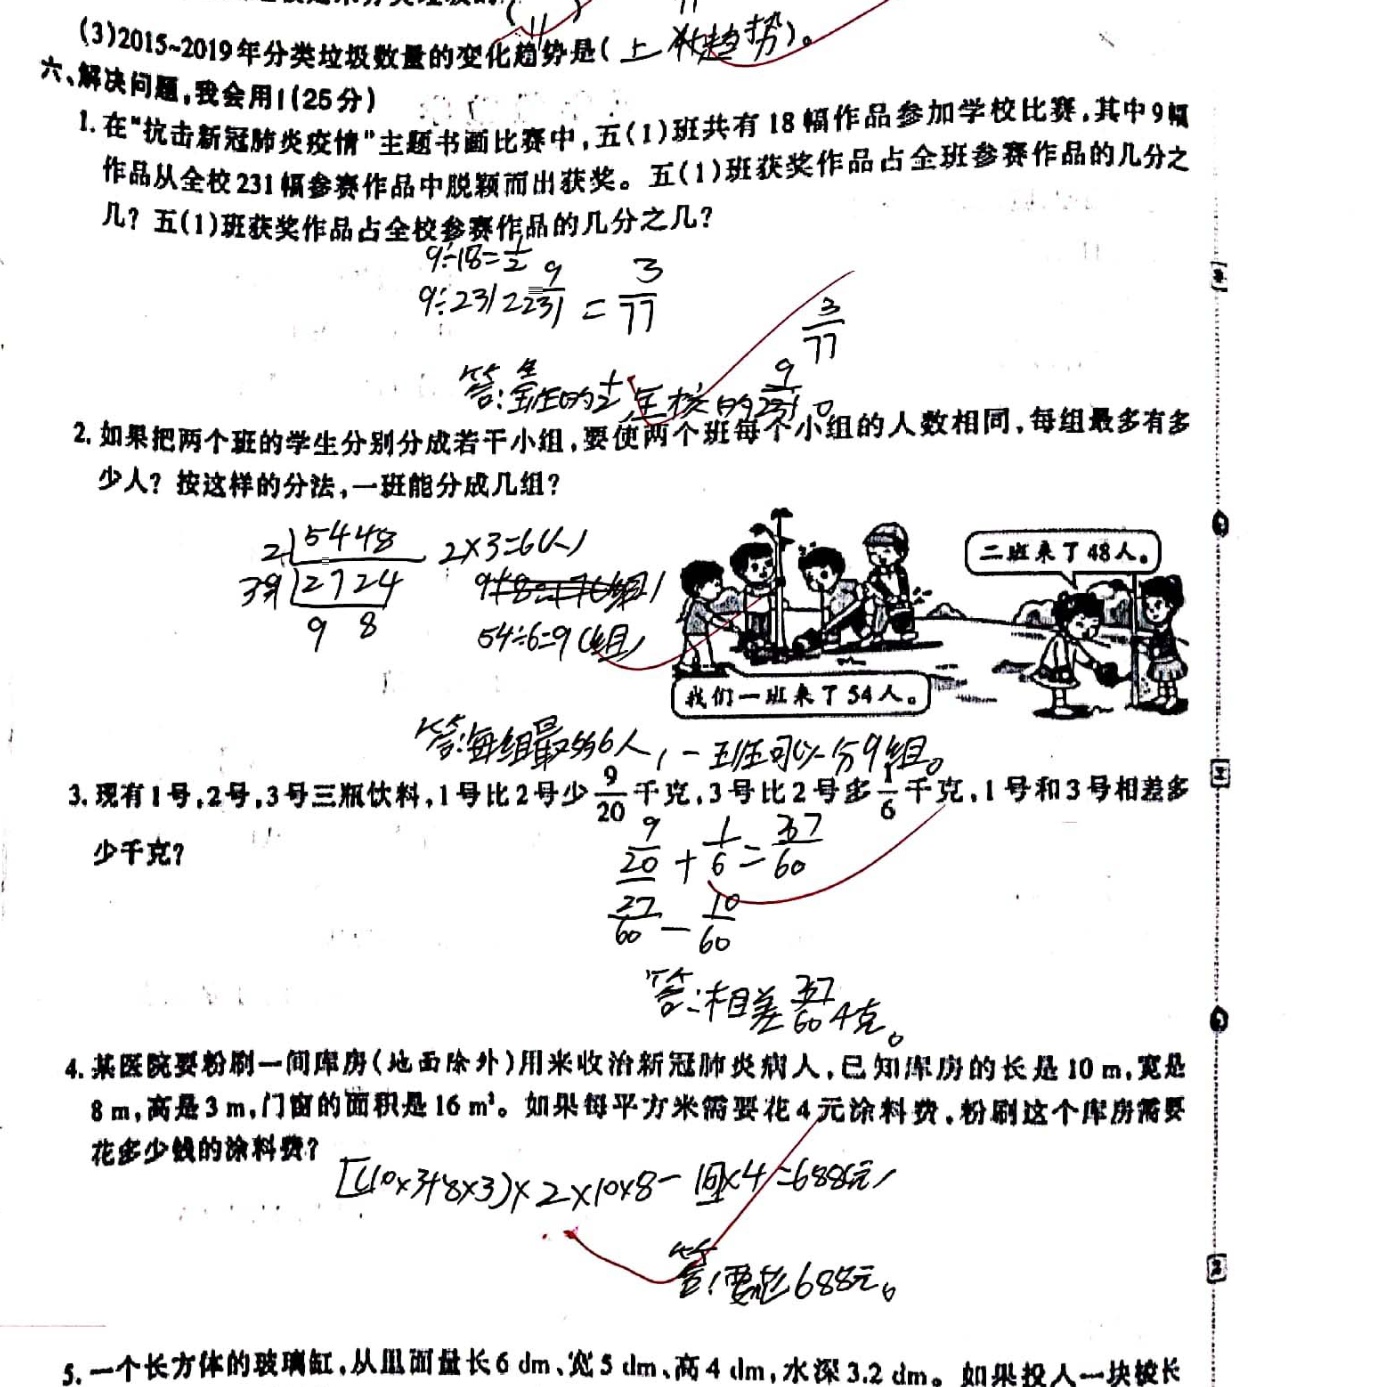 (3)2015~2019年分类垃圾数量的变化趋势是(上升趋势)。
六、解决问题,我会用!(25分)
1.在“抗击新冠肺炎疫情”主题书画比赛中,五(1)班共有18幅作品参加学校比赛,其中9幅
作品从全校231幅参赛作品中脱颖而出获奖。五(1)班获奖作品占全班参赛作品的几分之
几?五(1)班获奖作品占全校参赛作品的几分之几?
9÷18=1/2
9÷231=9/231=3/77
3/77
答:全班的1/2,全校的9/231。
2.如果把两个班的学生分别分成若干小组,要使两个班每个小组的人数相同,每组最多有多
少人?按这样的分法,一班能分成几组?
2 54 48 2×3=6(人)
二班来了48人。
3 27 24
9 8 54÷6=9(组)
我们一班来了54人。
答:每组最多6人,一班可以分9组。
3.现有1号,2号,3号三瓶饮料,1号比2号少9/20千克,3号比2号多1/6千克,1号和3号相差多
少千克?
9/20+1/6=37/60
27/60-10/60
答:相差37/60千克。
4.某医院要粉刷一间库房(地面除外)用来收治新冠肺炎病人,已知库房的长是10 m,宽是
8 m,高是3 m,门窗的面积是16 m²。如果每平方米需要花4元涂料费,粉刷这个库房需要
花多少钱的涂料费?
[(10×3+8×3)×2×10×8-16]×4=688(元)
答:要花688元。
5.一个长方体的玻璃缸,从里面量长6 dm、宽5 dm、高4 dm,水深3.2 dm。如果投入一块棱长